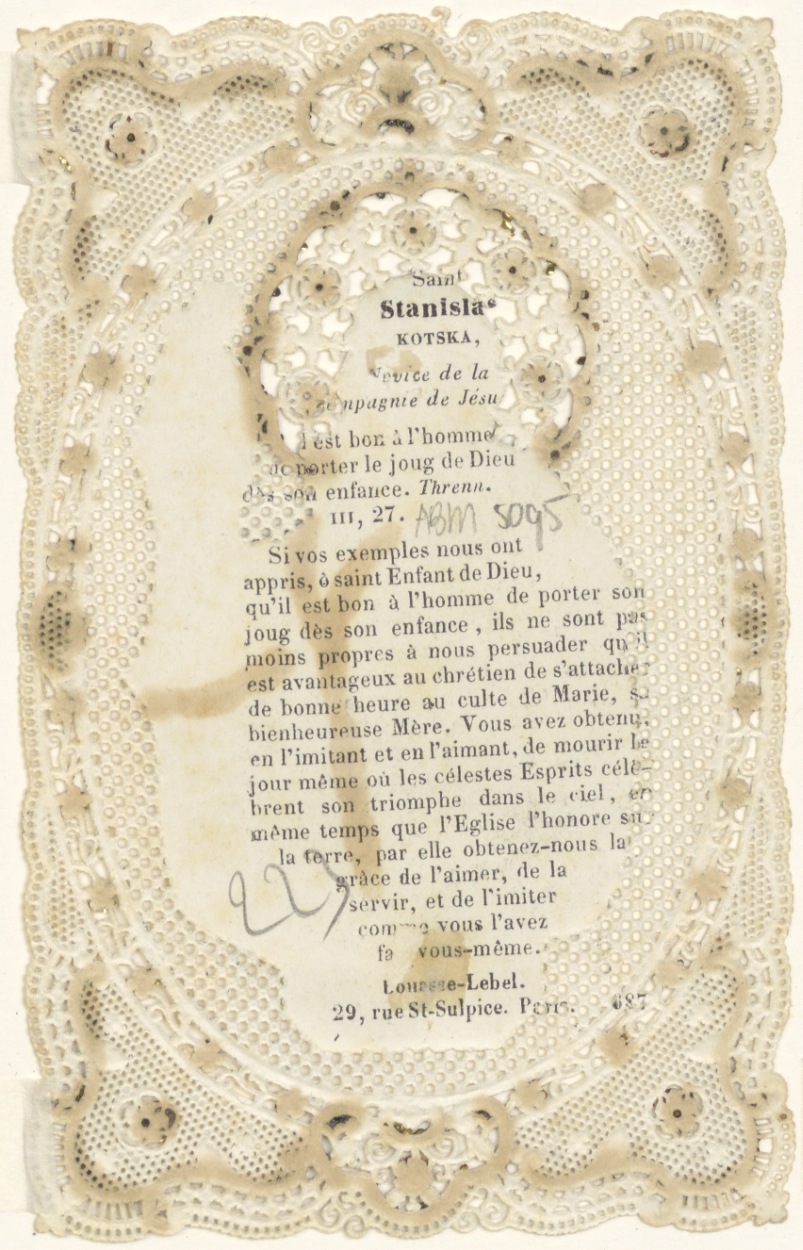 Saint
Stanislas
KOTSKA,
Novice de la
Compagnie de Jésu
l est bon à l'homme
de porter le joug de Dieu
dès son enfance. Threnn.
III, 27. ABM 5095
Si vos exemples nous ont
appris, ô saint Enfant de Dieu,
qu'il est bon à l'homme de porter son
joug dès son enfance, ils ne sont pas
moins propres à nous persuader qu'il
est avantageux au chrétien de s'attacher
de bonne heure au culte de Marie, sa
bienheureuse Mère. Vous avez obtenu,
en l'imitant et en l'aimant, de mourir le
jour même où les célestes Esprits célè-
brent son triomphe dans le ciel, en
même temps que l'Eglise l'honore sur
la terre, par elle obtenez-nous la
grâce de l'aimer, de la
servir, et de l'imiter
comme vous l'avez
fa vous-même.
-Lebel.
29, rue St-Sulpice. Paris. 687